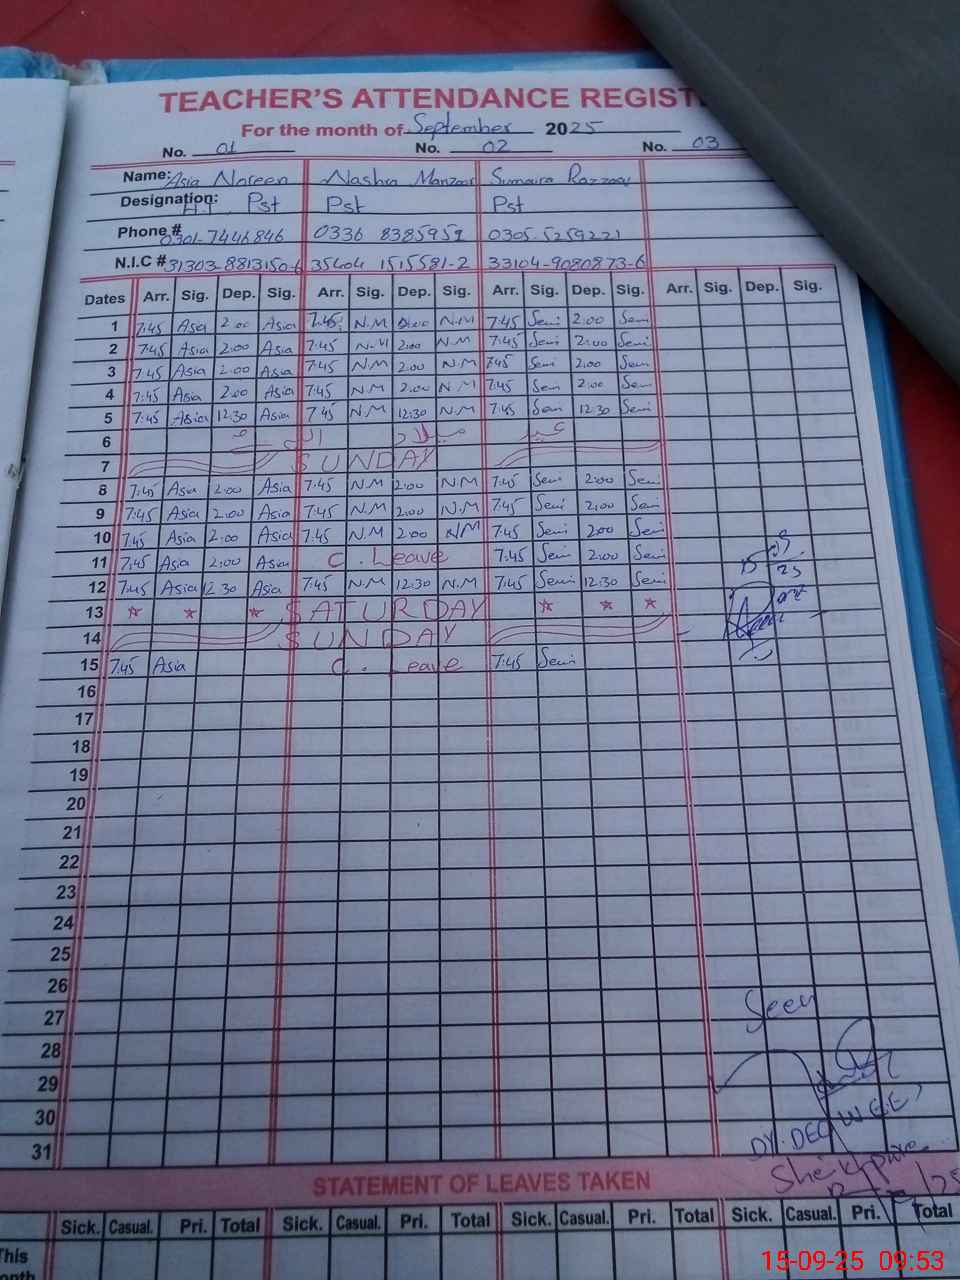 TEACHER'S ATTENDANCE REGIST
For the month of September 2025
No. 01 No. 02 No. 03
Name: Asia Noreen Nashra Manzoor Sumaira Razzaq
Designation: H.T Pst Pst Pst
Phone # 0301-7446846 0336 8385951 0305-5259221
N.I.C # 31303-8813150-6 35404 1515581-2 33104-9080873-6
Dates Arr. Sig. Dep. Sig. Arr. Sig. Dep. Sig. Arr. Sig. Dep. Sig. Arr. Sig. Dep. Sig.
1 7:45 Asia 2:00 Asia 7:45 N.M 2:00 N.M 7:45 Semi 2:00 Semi
2 7:45 Asia 2:00 Asia 7:45 N.M 2:00 N.M 7:45 Semi 2:00 Semi
3 7:45 Asia 2:00 Asia 7:45 N.M 2:00 N.M 7:45 Semi 2:00 Semi
4 7:45 Asia 2:00 Asia 7:45 N.M 2:00 N.M 7:45 Semi 2:00 Semi
5 7:45 Asia 12:30 Asia 7:45 N.M 12:30 N.M 7:45 Semi 12:30 Semi
6 عید میلاد النبی
7 SUNDAY
8 7:45 Asia 2:00 Asia 7:45 N.M 2:00 N.M 7:45 Semi 2:00 Semi
9 7:45 Asia 2:00 Asia 7:45 N.M 2:00 N.M 7:45 Semi 2:00 Semi
10 7:45 Asia 2:00 Asia 7:45 N.M 2:00 N.M 7:45 Semi 2:00 Semi
11 7:45 Asia 2:00 Asia C. Leave 7:45 Semi 2:00 Semi
12 7:45 Asia 12:30 Asia 7:45 N.M 12:30 N.M 7:45 Semi 12:30 Semi
13 SATURDAY
14 SUNDAY
15 7:45 Asia C. Leave 7:45 Semi
16
17
18
19
20
21
22
23
24
25
26
27 Seen
28
29
30
31 DY. DEO W.EE
Sheikhpura
STATEMENT OF LEAVES TAKEN
Sick. Casual. Pri. Total Sick. Casual. Pri. Total Sick. Casual. Pri. Total Sick. Casual. Pri. Total
This
onth
15-09-25 09:53